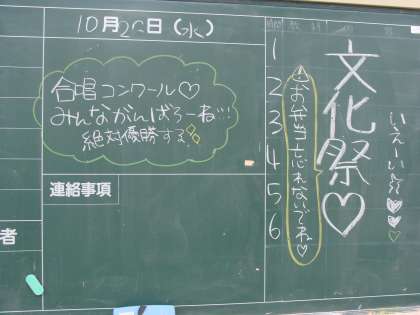 10月20日(水)
合唱コンワール♡
みんながんばろーね!!!
絶対優勝する
連絡事項
者
時間
1
2
3
4
5
6
お弁当忘れないでね♡
文化祭♡
いえーい